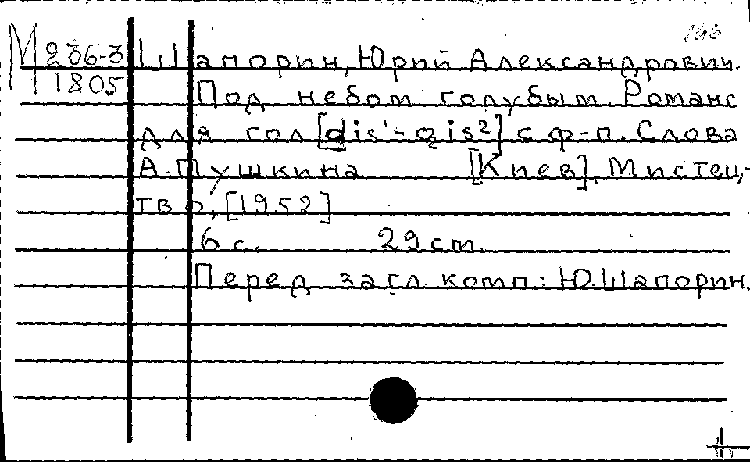 М 236-3 Шапорин, Юрий Александрович.
1805 Под небом голубым. Романс
для гол [dis¹-gis²] с ф-п. Слова
А. Пушкина [Киев], Мистец-
тво, [1952]
6 с. 29 cm.
Перед загл. комп.: Ю. Шапорин.